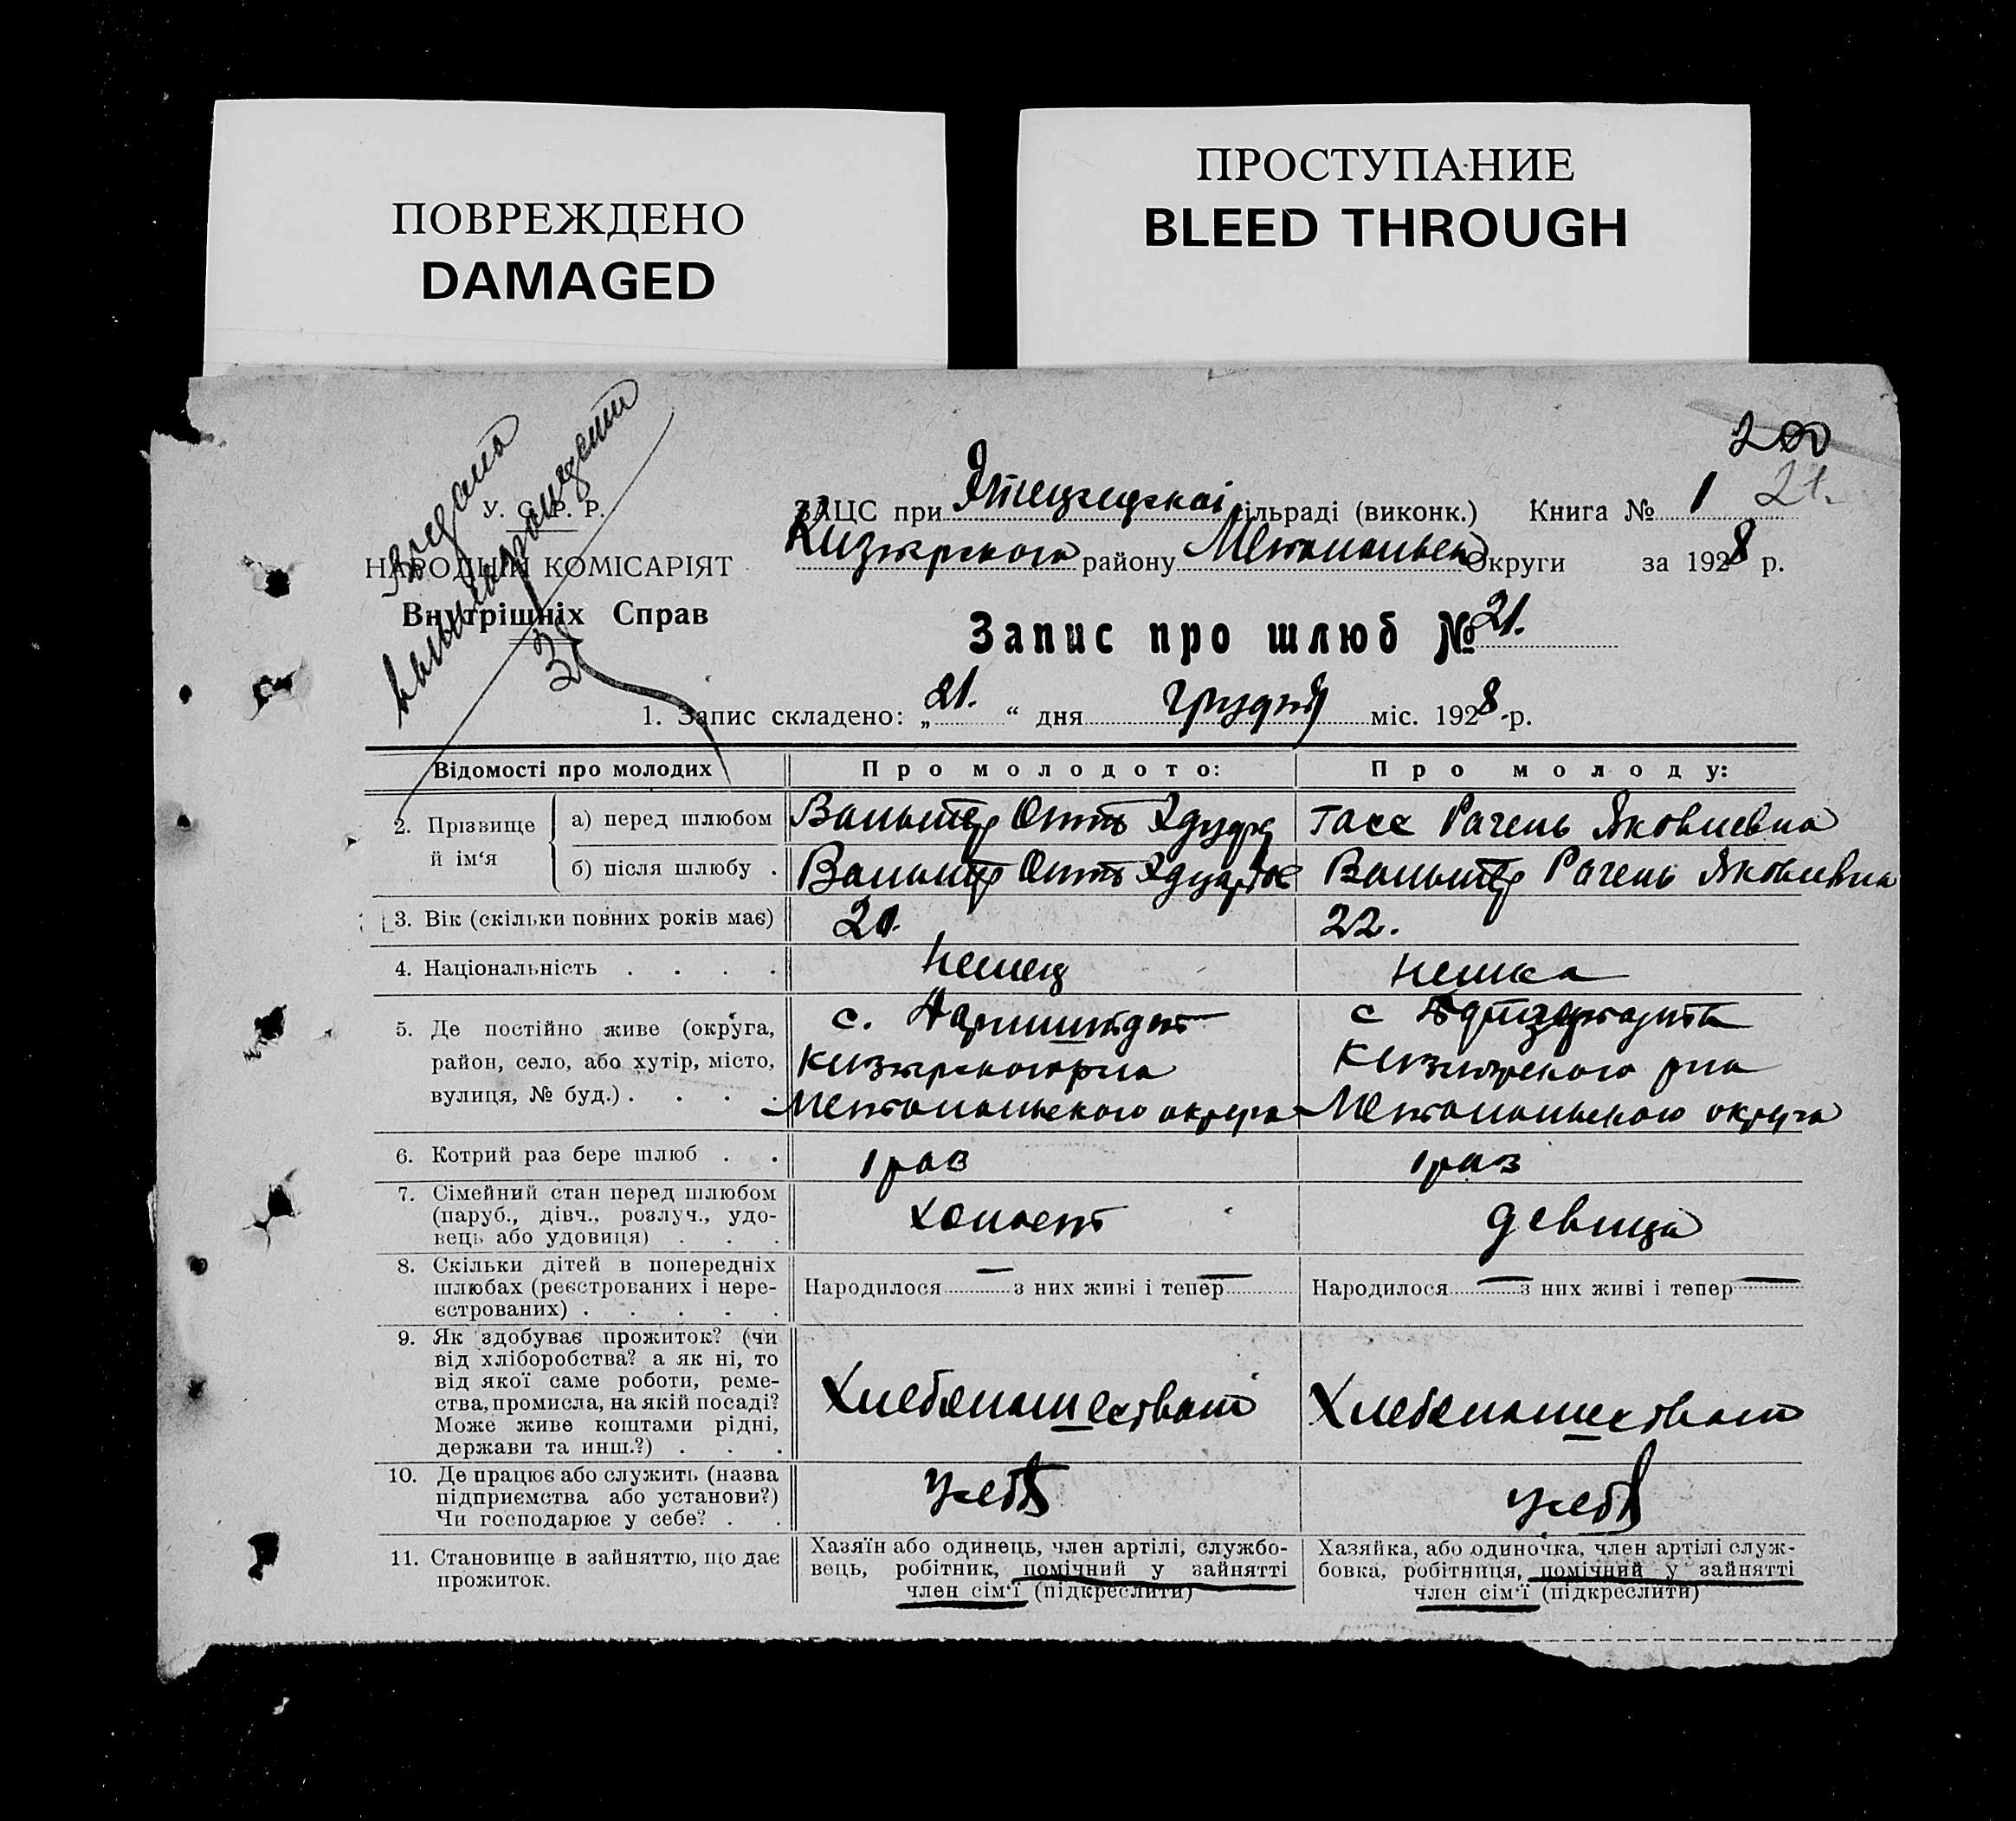 ПОВРЕЖДЕНО
DAMAGED
ПРОСТУПАНИЕ
BLEED THROUGH
200
21.
У. С. Р. Р.
НАРОДНІЙ КОМІСАРІЯТ
Внутрішніх Справ
ЗАЦС при сільраді (виконк.) Книга № 1
району округи за 1928 р.
Запис про шлюб № 21.
1. Запис складено: „21.“ дня грудня міс. 1928 р.
Відомості про молодих
Про молодого:
Про молоду:
2. Прізвище й ім‘я
а) перед шлюбом
Вальтер Отто
Гасс Рагель Яковлевна
б) після шлюбу
Вальтер Отто
Вальтер Рагель Яковлевна
3. Вік (скільки повних років має)
22.
4. Національність
немец
немка
5. Де постійно живе (округа,
район, село, або хутір, місто,
вулиця, № буд.)
с.
с
Мелитопольского округа
Мелитопольского округа
6. Котрий раз бере шлюб
1 раз
1 раз
7. Сімейний стан перед шлюбом
(паруб., дівч., розлуч., удо-
вець або удовиця)
холост
девица
8. Скільки дітей в попередніх
шлюбах (реєстрованих і нере-
єстрованих)
Народилося — з них живі і тепер —
Народилося — з них живі і тепер —
9. Як здобуває прожиток? (чи
від хліборобства? а як ні, то
від якої саме роботи, реме-
ства, промисла, на якій посаді?
Може живе коштами рідні,
держави та инш.?)
Хлебопашеством
Хлебопашеством
10. Де працює або служить (назва
підприємства або установи?)
Чи господарює у себе?
у себя
у себя
11. Становище в зайняттю, що дає
прожиток.
Хазяїн або одинець, член артілі, службо-
вець, робітник, помічний у зайнятті
член сім‘ї (підкреслити)
Хазяйка, або одиночка, член артілі служ-
бовка, робітниця, помічний у зайнятті
член сім‘ї (підкреслити)